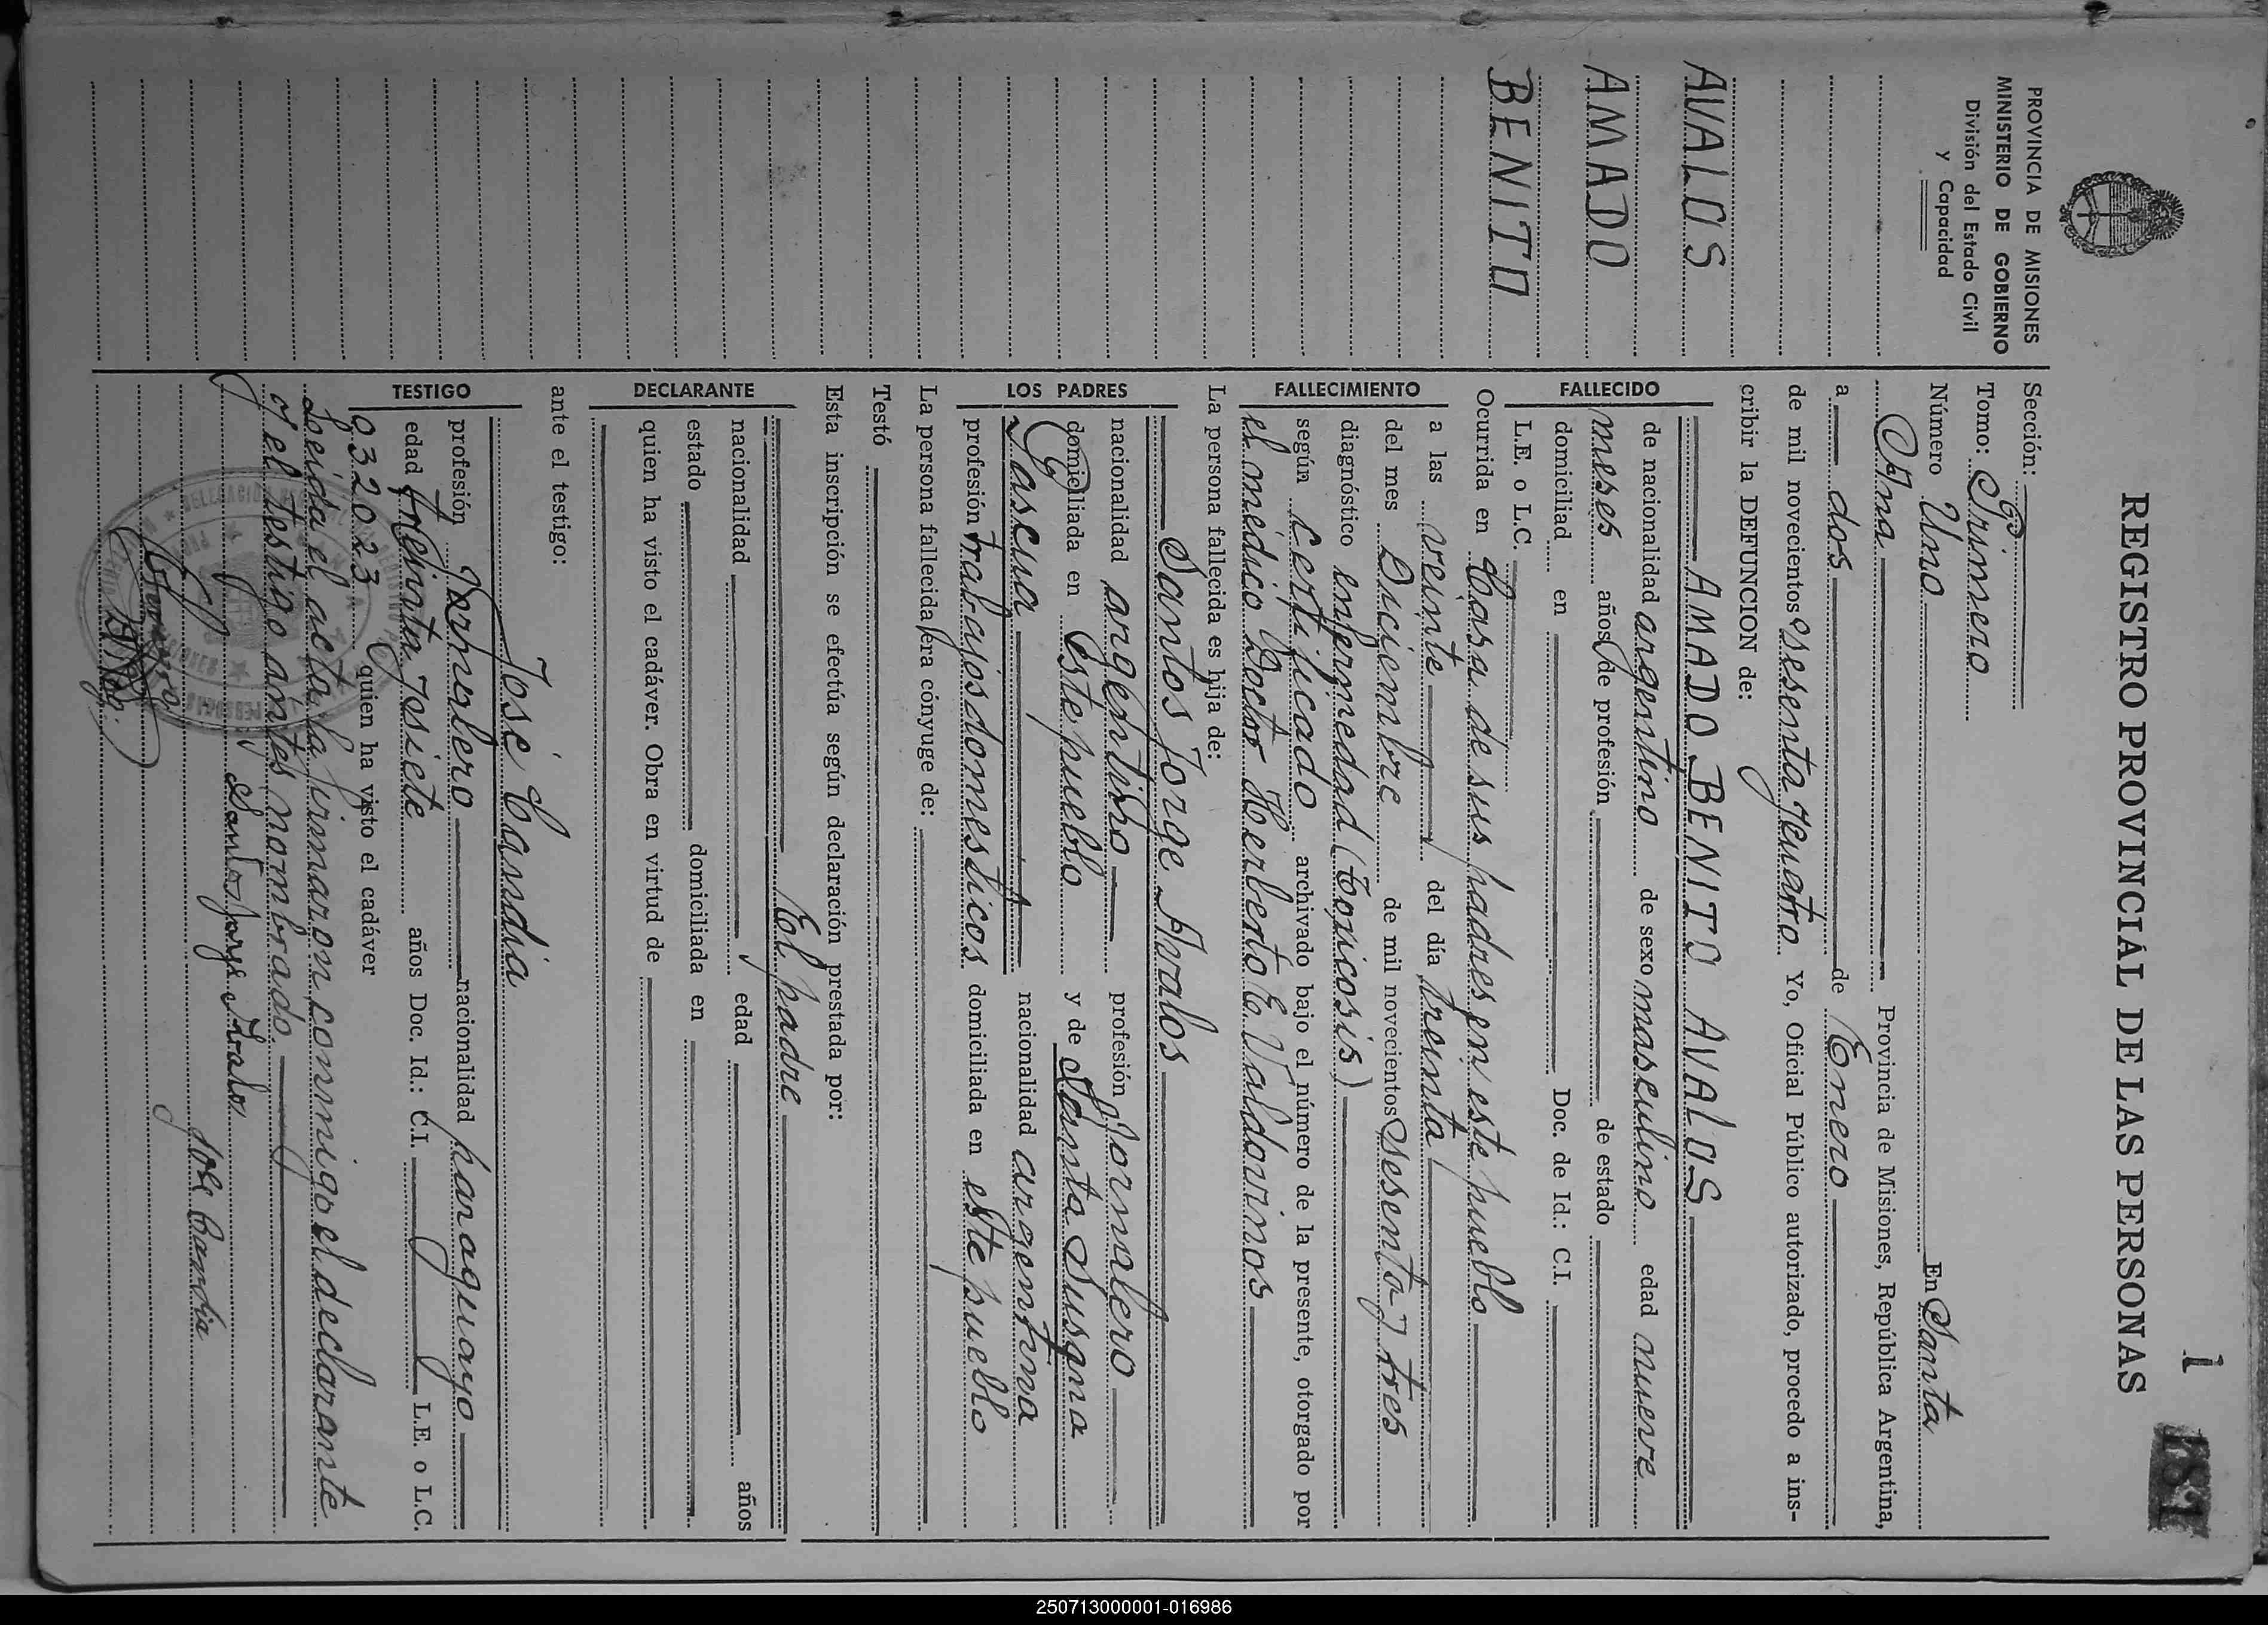 1
REGISTRO PROVINCIAL DE LAS PERSONAS
PROVINCIA DE MISIONES
MINISTERIO DE GOBIERNO
División del Estado Civil
y Capacidad
AVALOS
AMADO
BENITO
Sección:
Tomo: Primero
Número Uno En Santa
Ana Provincia de Misiones, República Argentina,
a dos de Enero
de mil novecientos sesenta y cuatro Yo, Oficial Público autorizado, procedo a ins-
cribir la DEFUNCION de:
FALLECIDO
AMADO BENITO AVALOS
de nacionalidad argentino de sexo masculino edad nueve
meses años de profesión de estado
domiciliad en Doc. de Id.: C.I.
L.E. o L.C.
FALLECIMIENTO
Ocurrida en Casa de sus padres en este pueblo
a las veinte del día treinta
del mes Diciembre de mil novecientos sesenta y tres
diagnóstico enfermedad (toxicosis)
según certificado archivado bajo el número de la presente, otorgado por
el médico Doctor Herberto E. Valdovinos
La persona fallecida es hija de:
LOS PADRES
Santos Jorge Avalos
nacionalidad argentino profesión jornalero
domiciliada en este pueblo y de Santa Susana
nacionalidad argentina
profesión trabajos domesticos domiciliada en este pueblo
La persona fallecida era cónyuge de:
Testó
Esta inscripción se efectúa según declaración prestada por:
DECLARANTE
El padre
nacionalidad edad años
estado domiciliada en
quien ha visto el cadáver. Obra en virtud de
ante el testigo:
TESTIGO
José Candia
profesión Jornalero nacionalidad paraguayo
edad treinta y siete años Doc. Id.: C.I. L.E. o L.C.
032023 quien ha visto el cadáver
Leída el acta, la firmaron conmigo el declarante
y el testigo antes nombrado.
Santos Jorge Avalos
José Candia
250713000001-016986